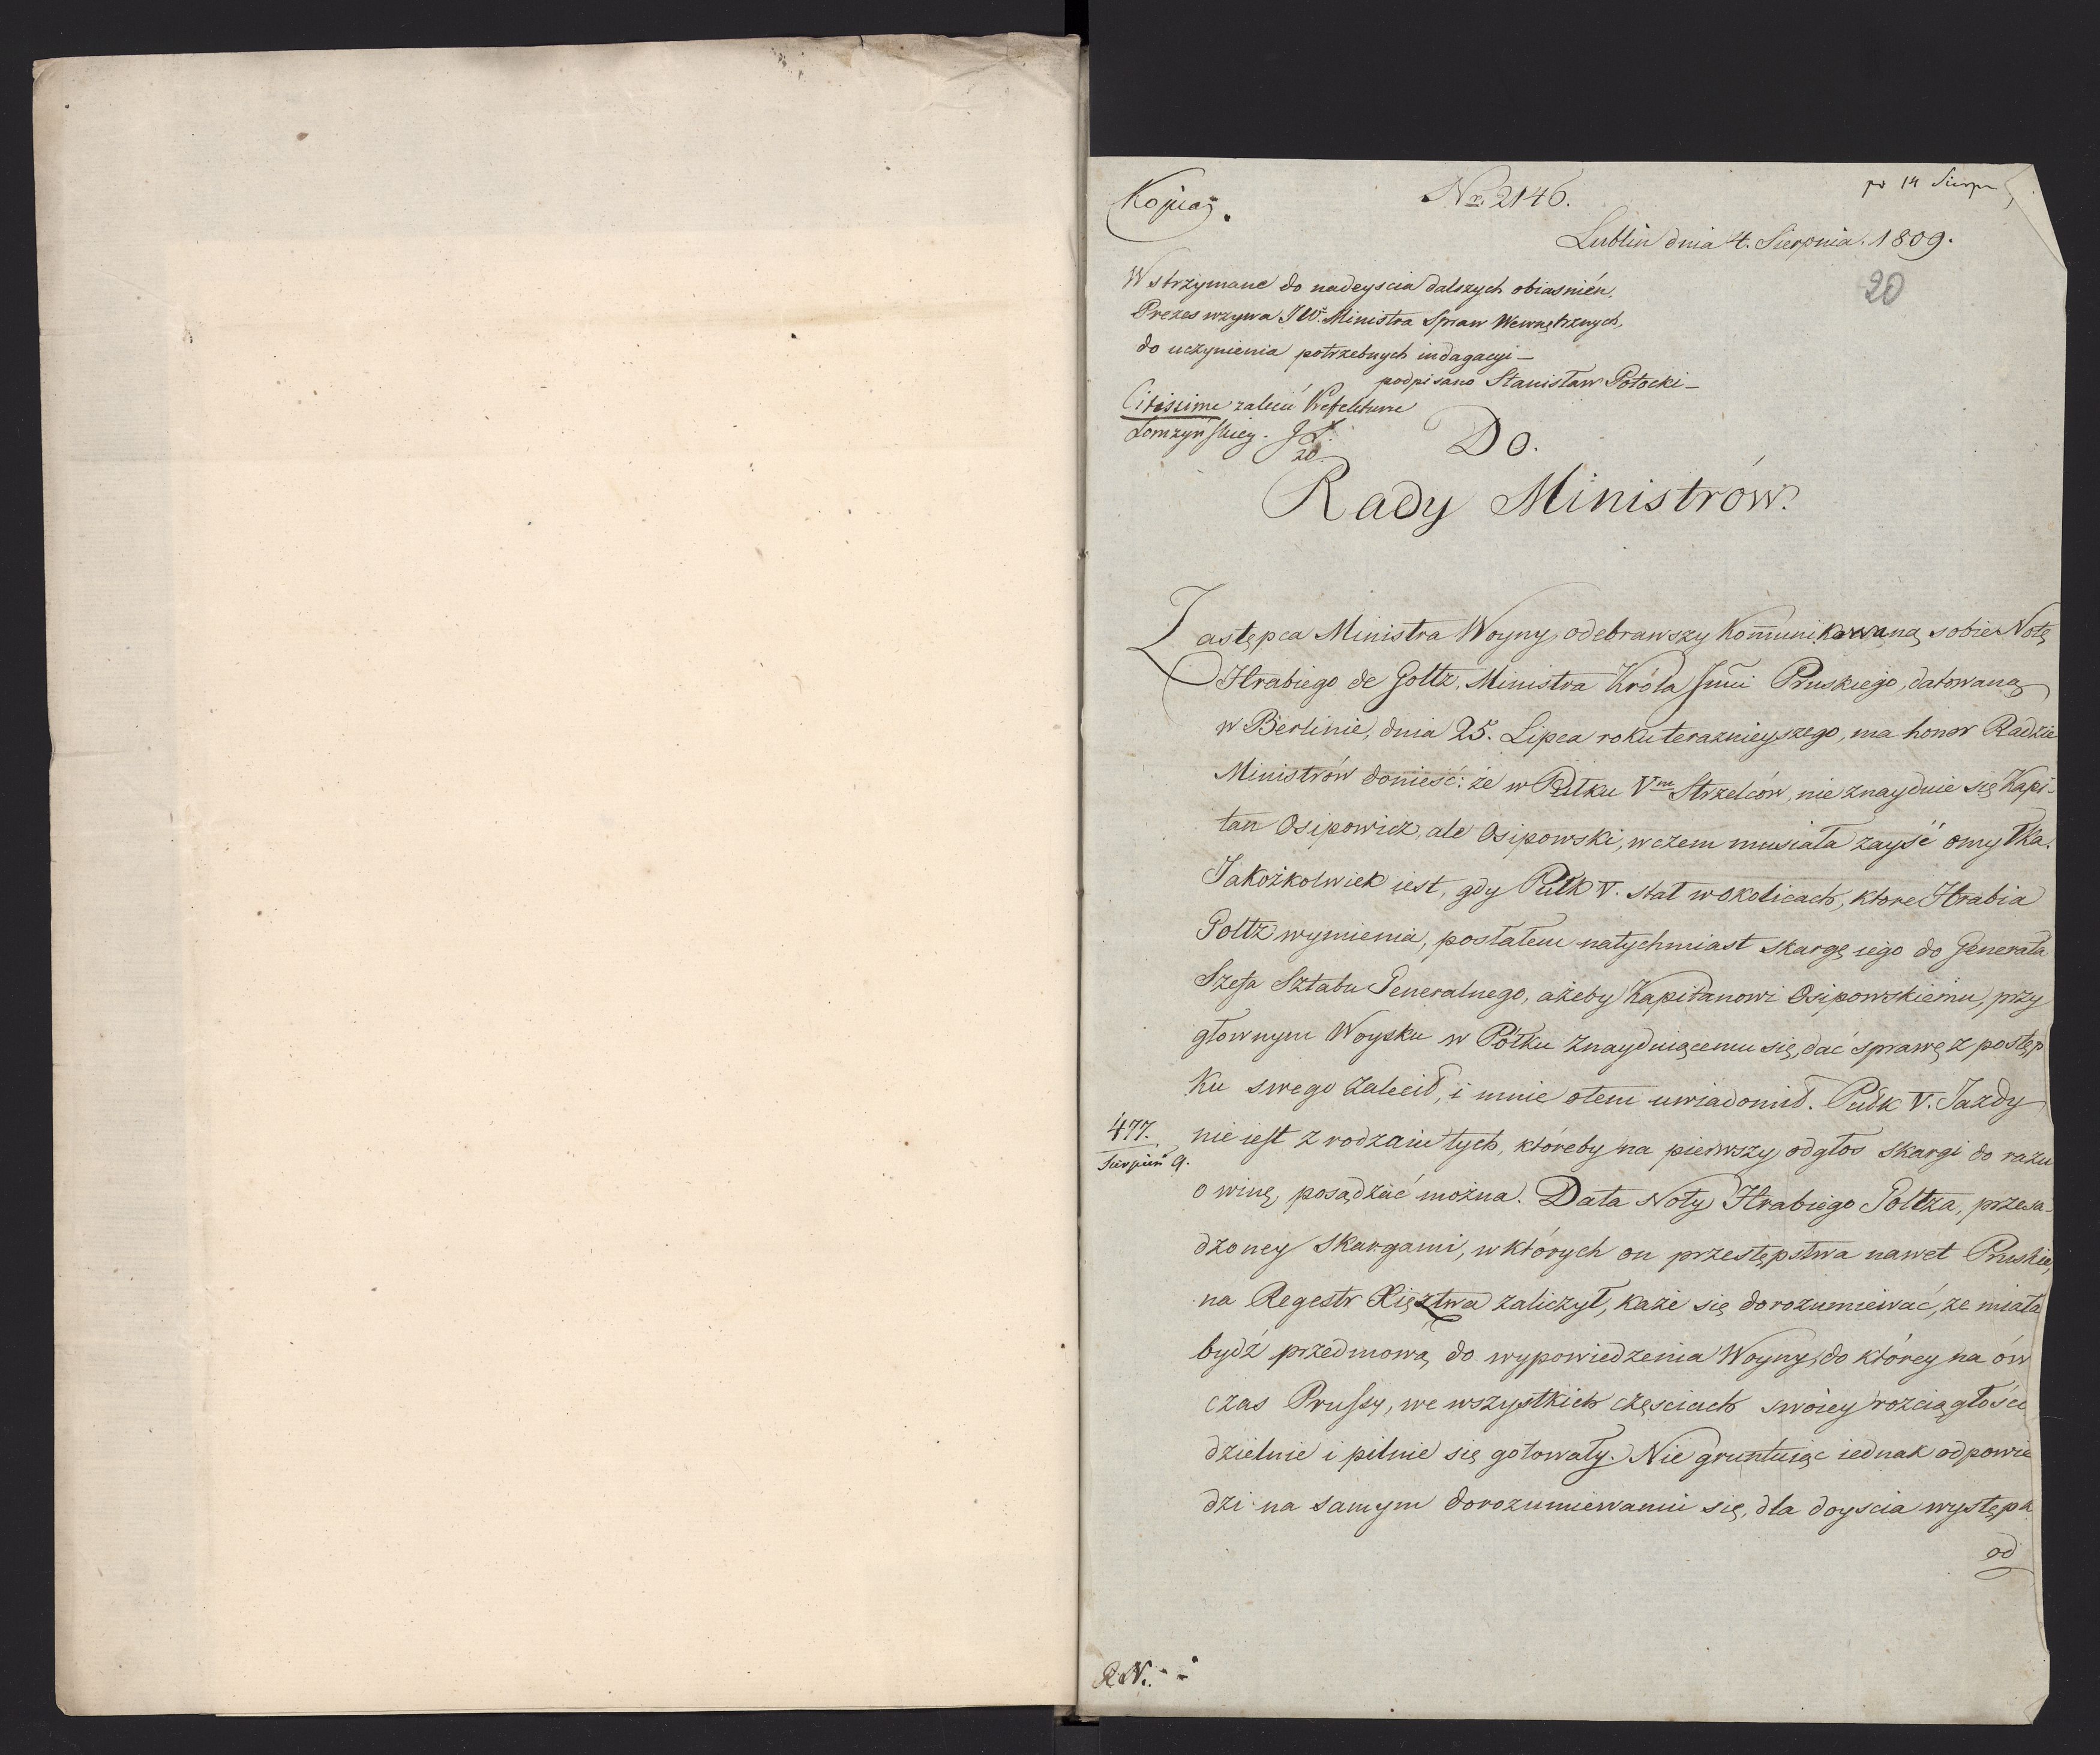 Kopia.
Nr. 2146.
pr 14 Sierpn
Lublin dnia 4. Sierpnia. 1809.
20
Wstrzymane do nadeyscia dalszych obiasnień,
Prezes wzywa JW. Ministra Spraw Wewnętrznych,
do uczynienia potrzebnych indagacyi –
podpisano Stanisław Potocki –
Citissime zalecić Prefekturze
Łomzyńskiey. JŁ.
20.
Do.
Rady Ministrów.
Zastępca Ministra Woyny, odebrawszy Kom̄unikowaną sobie Notę
Hrabiego de Goltz, Ministra Króla Jm̄ci Pruskiego, datowaną
w Berlinie, dnia 25. Lipca roku teraznieyszego, ma honor Radzie
Ministrów donieść: że w Pułku Vm Strzelców, nie znayduie się Kapi-
tan Osipowicz, ale Osipowski, w czem musiała zayść omyłka.
Jakożkolwiek iest, gdy Pułk V. stał w okolicach, ktore Hrabia
Goltz wymienia, posłałem natychmiast skargę iego do Generała
Szefa Sztabu Generalnego, ażeby Kapitanowi Osipowskiemu, przy
głownym Woysku w Półku znayduiącemu się, dać sprawę z postęp
ku swego zalecił, i mnie o tem uwiadomił. Pułk V. Jazdy
477.
Sierpień 9.
nie iest z rodzaiu tych, któreby na pierwszy odgłos skargi do razu
o winę, posądzać można. Data Noty Hrabiego Goltza, przesa-
dzoney skargami, w których on przestępstwa nawet Pruskie,
na Regestr Xięztwa zaliczył, każe się dorozumiewać, ze miała
bydź przedmową do wypowiedzenia Woyny, do którey na ów
czas Prussy, we wszystkich częsciach swoiey rozciągłości
dzielnie i pilnie się gotowały. Nie gruntuiąc iednak odpowie
dzi na samym dorozumiewaniu się, dla doyscia występku
od
R.N.